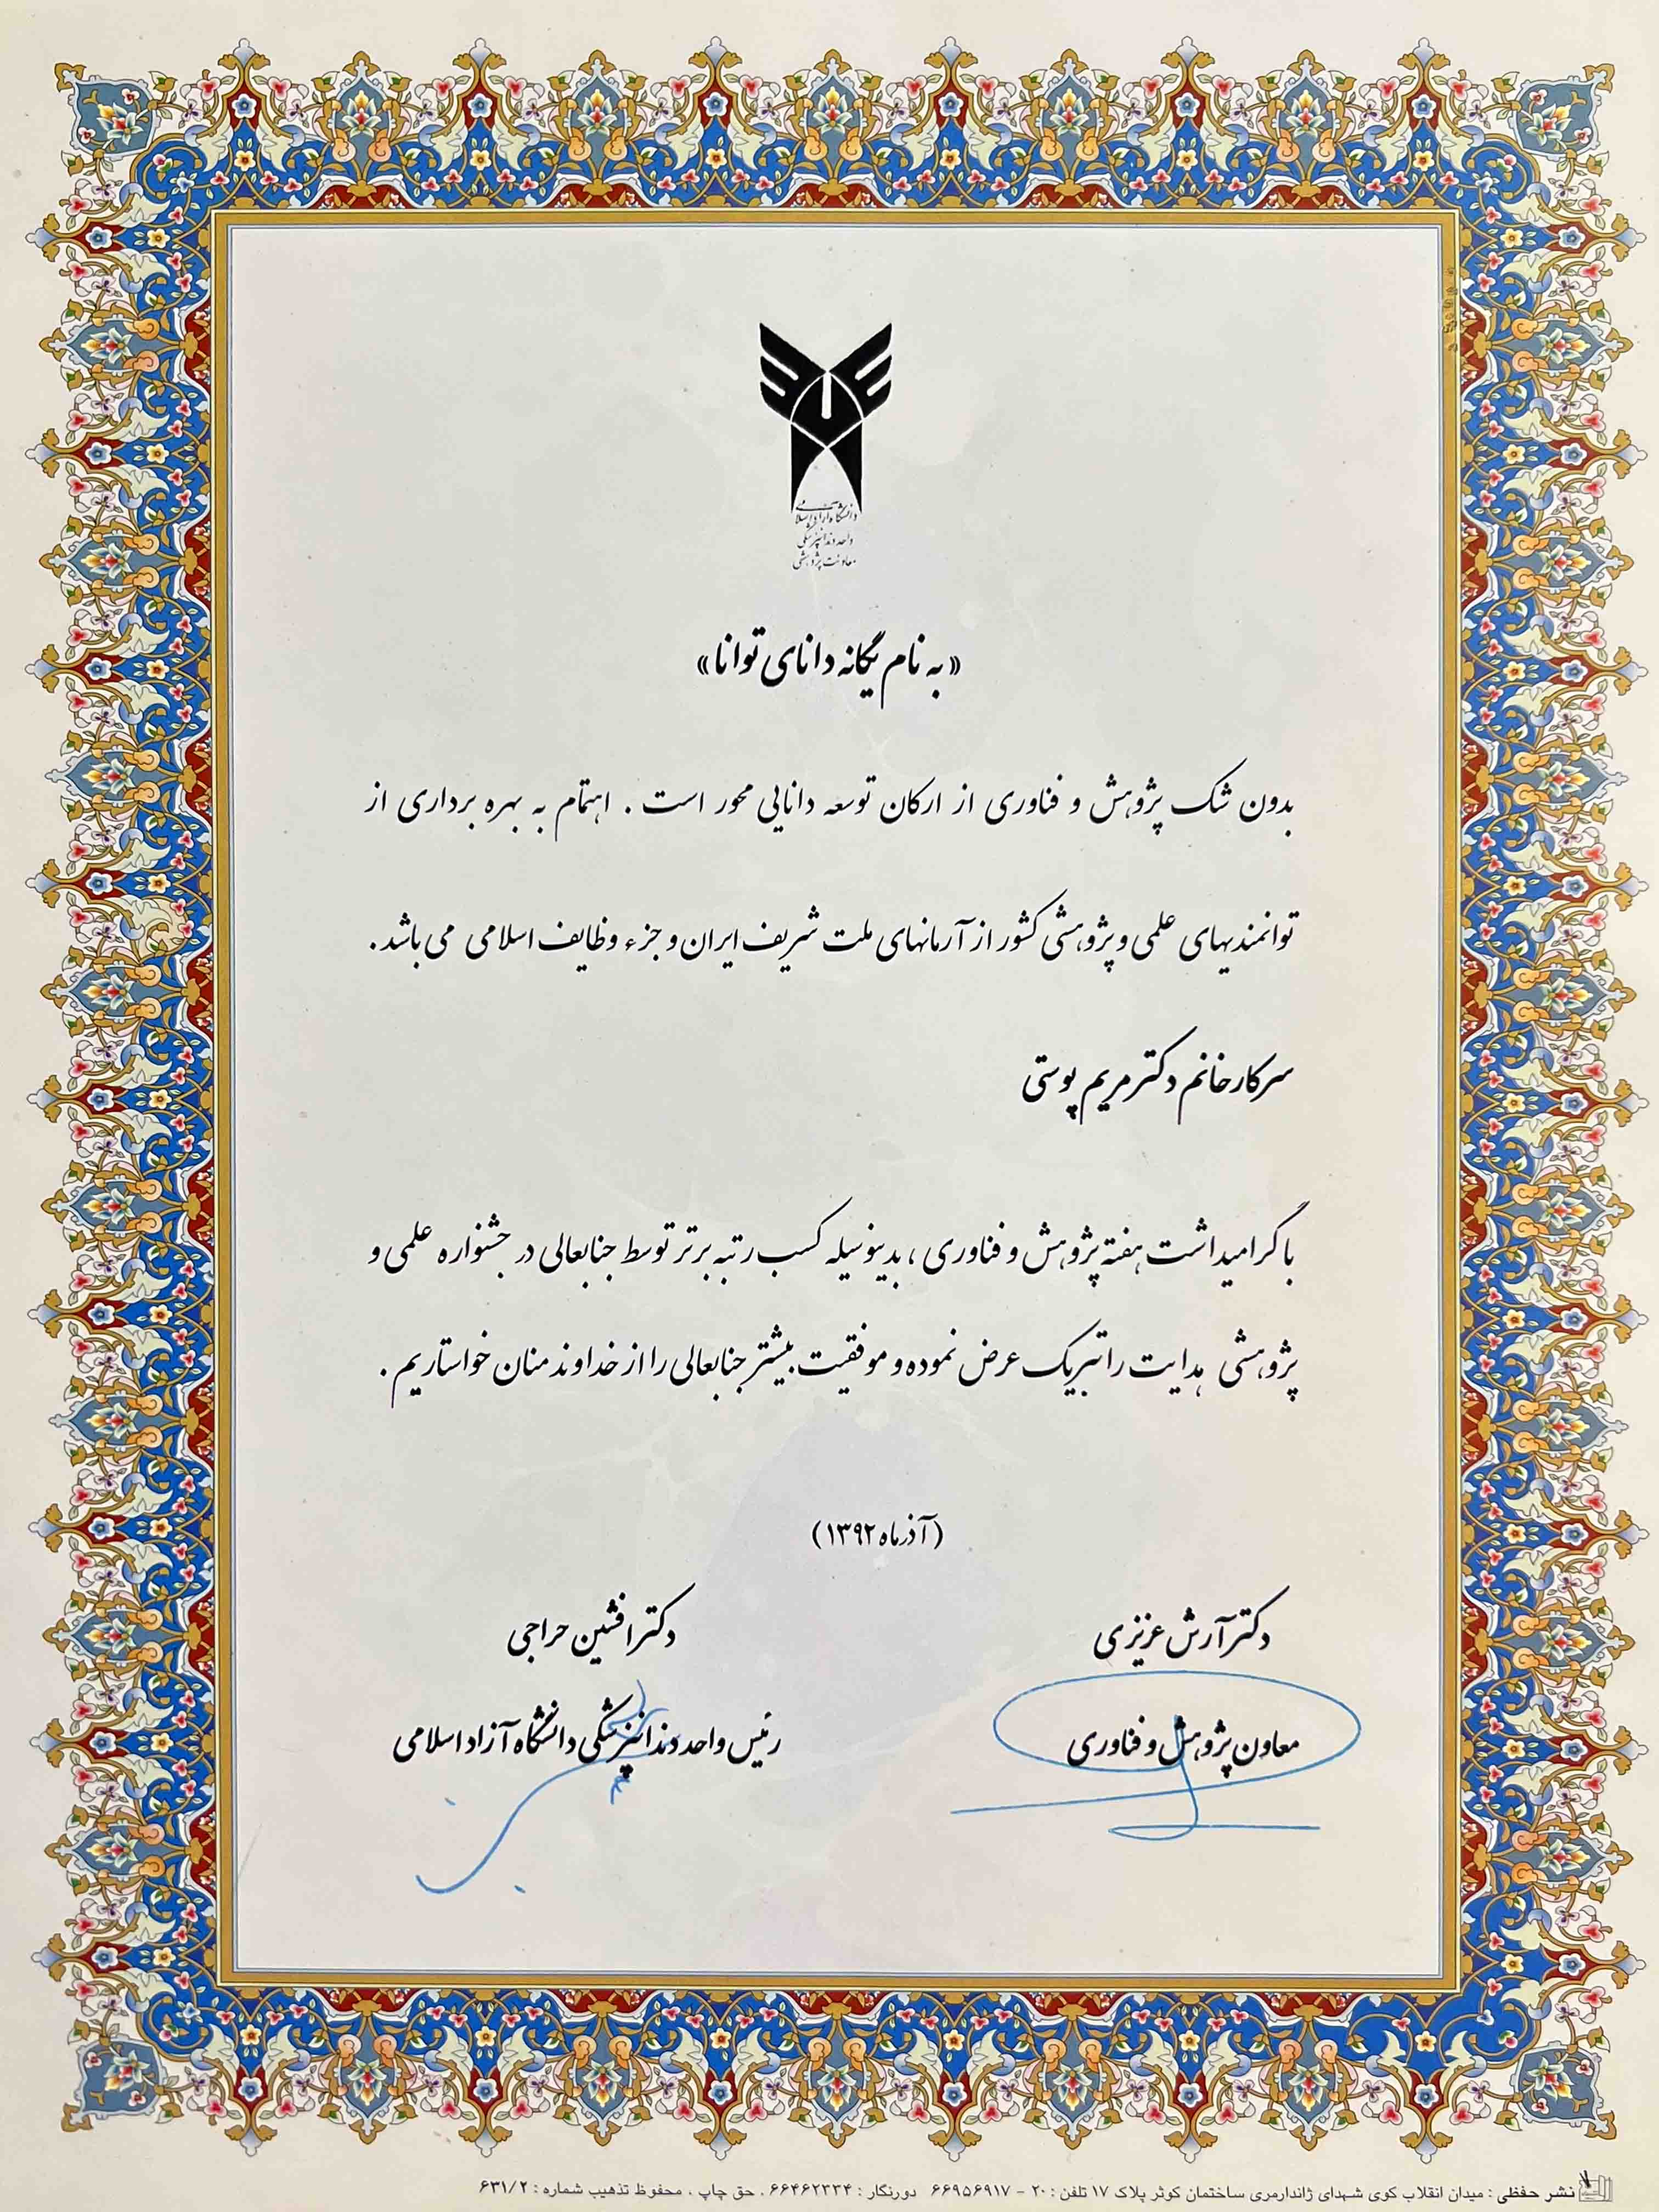 دانشگاه آزاد اسلامی
واحد دندانپزشکی
معاونت پژوهشی
«به نام یگانه دانای توانا»
بدون شک پژوهش و فناوری از ارکان توسعه دانایی محور است . اهتمام به بهره برداری از
توانمندیهای علمی و پژوهشی کشور از آرمانهای ملت شریف ایران و جزء وظایف اسلامی می باشد .
سرکار خانم دکتر مریم پوستی
با گرامیداشت هفته پژوهش و فناوری ، بدینوسیله کسب رتبه برتر توسط جنابعالی در جشنواره علمی و
پژوهشی هدایت را تبریک عرض نموده و موفقیت بیشتر جنابعالی را از خداوند منان خواستاریم .
(آذرماه ۱۳۹۲)
دکتر آرش عزیزی
معاون پژوهش و فناوری
دکتر افشین حراجی
رئیس واحد دندانپزشکی دانشگاه آزاد اسلامی
نشر حفظی : میدان انقلاب کوی شهدای ژاندارمری ساختمان کوثر پلاک ۱۷ تلفن : ۲۰ - ۶۶۹۵۶۹۱۷ دورنگار : ۶۶۴۶۲۳۳۴ . حق چاپ ، محفوظ تذهیب شماره : ۶۳۱/۲